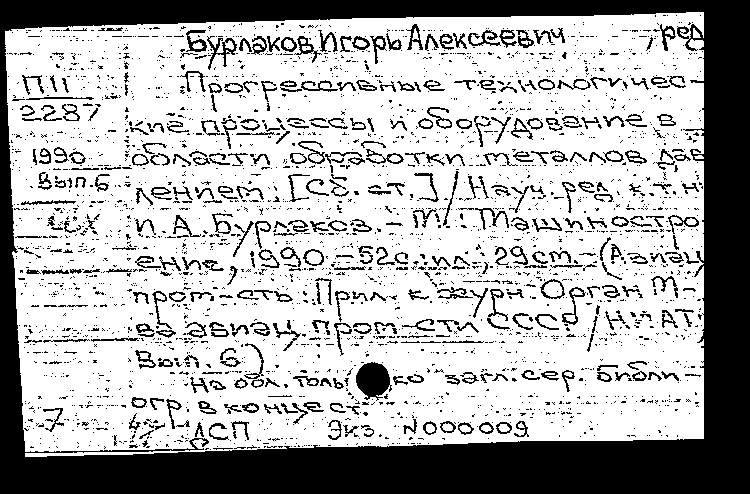 Бурлаков, Игорь Алексеевич , ред
П11
2287
1990
Вып.6
Прогрессивные технологичес-
кие процессы и оборудование в
области обработки металлов дав
лением: [Сб. ст.] / Науч. ред. к.т.н
И. А. Бурлаков. – М.: Машиностро
ение, 1990. – 52с.: ил.; 29см. – (Авиац
пром-сть: Прил. к журн. Орган М-
ва авиац. пром-сти СССР / НИАТ;
Вып. 6).
На обл. только загл. сер. Библи-
огр. в конце ст.
7
ДСП Экз. N000009